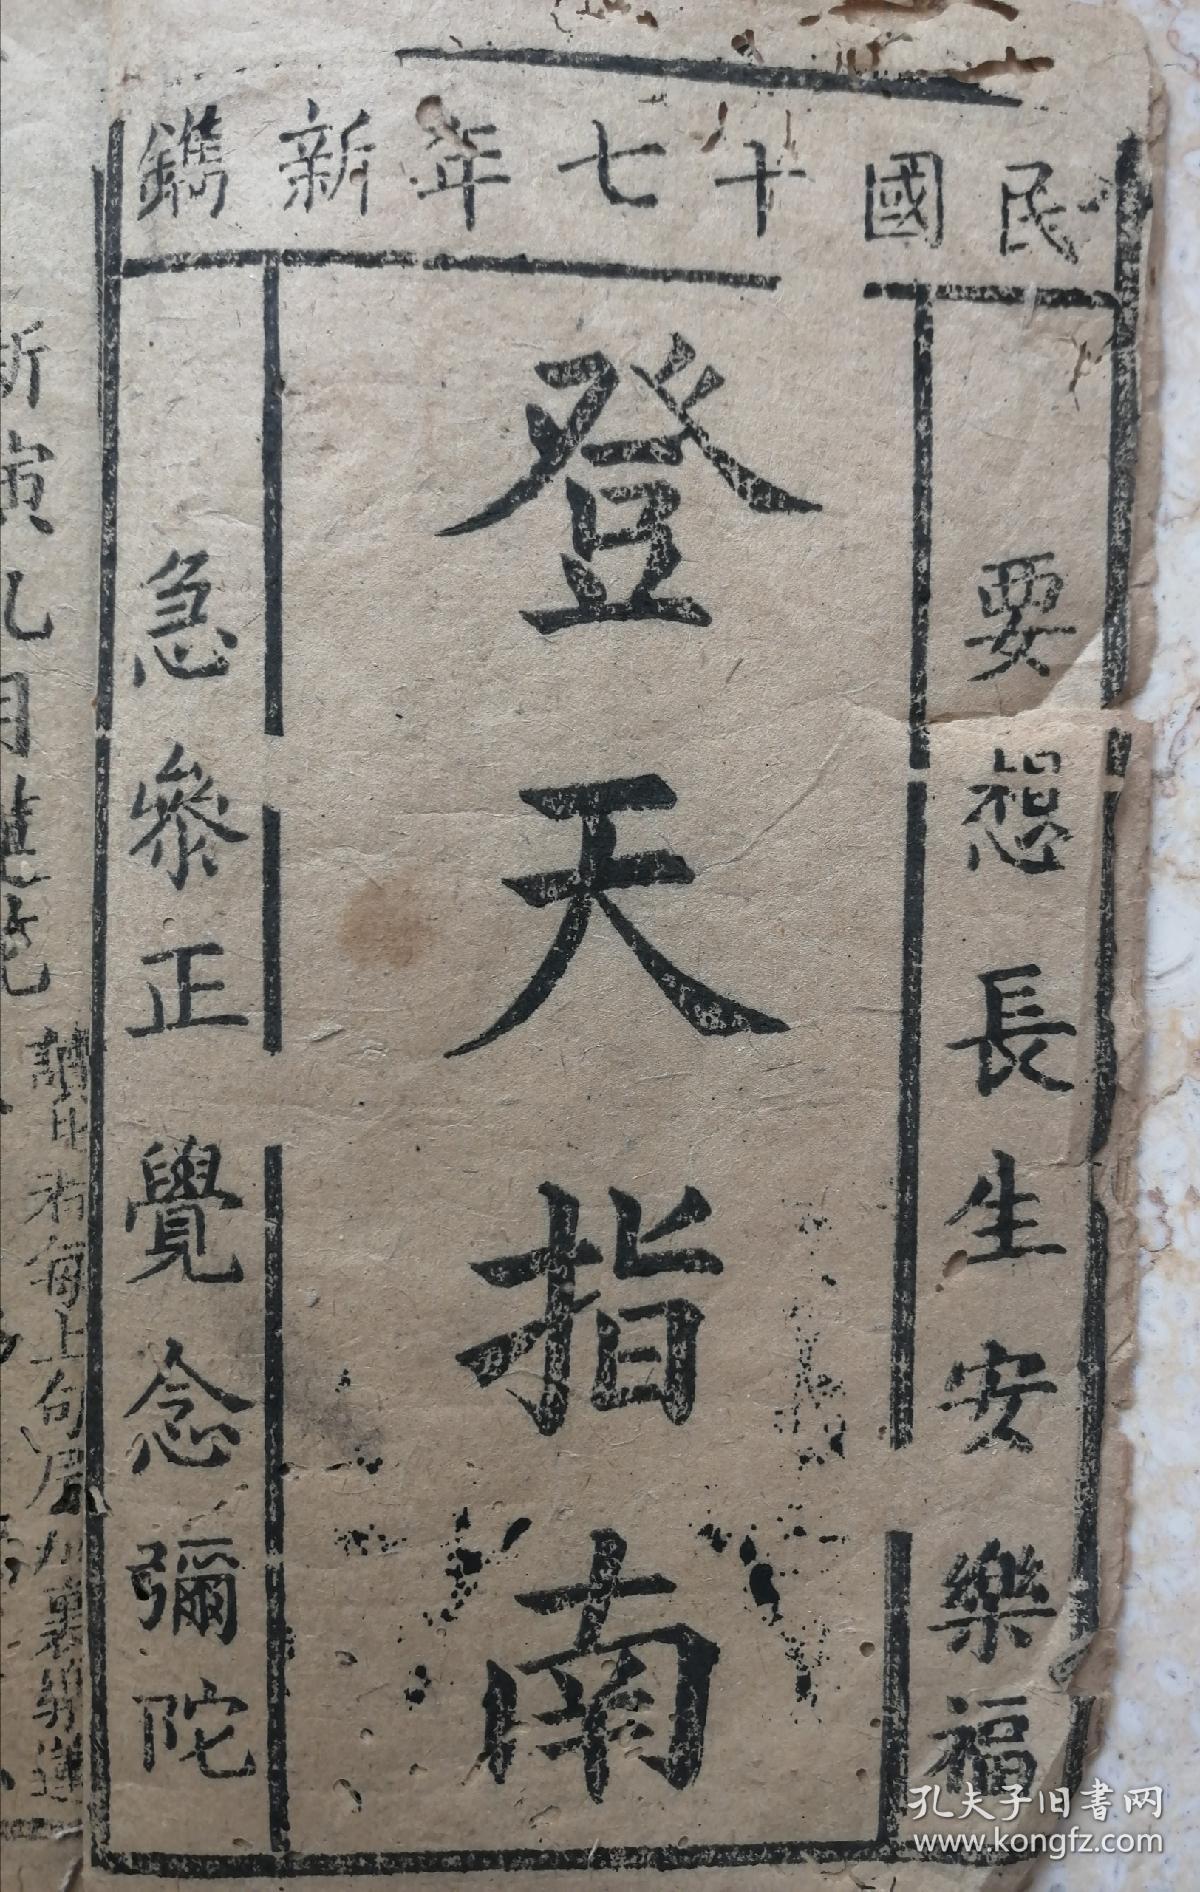 民國十七年新鐫
要想長生安樂福
登天指南
急參正覺念彌陀
孔夫子旧書网
www.kongfz.com